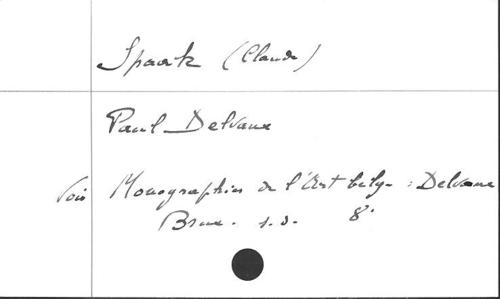 Spaak (Claude)
Paul Delvaux
Voir Monographies de l'Art belge : Delvaux
Brux. s.d. 8°